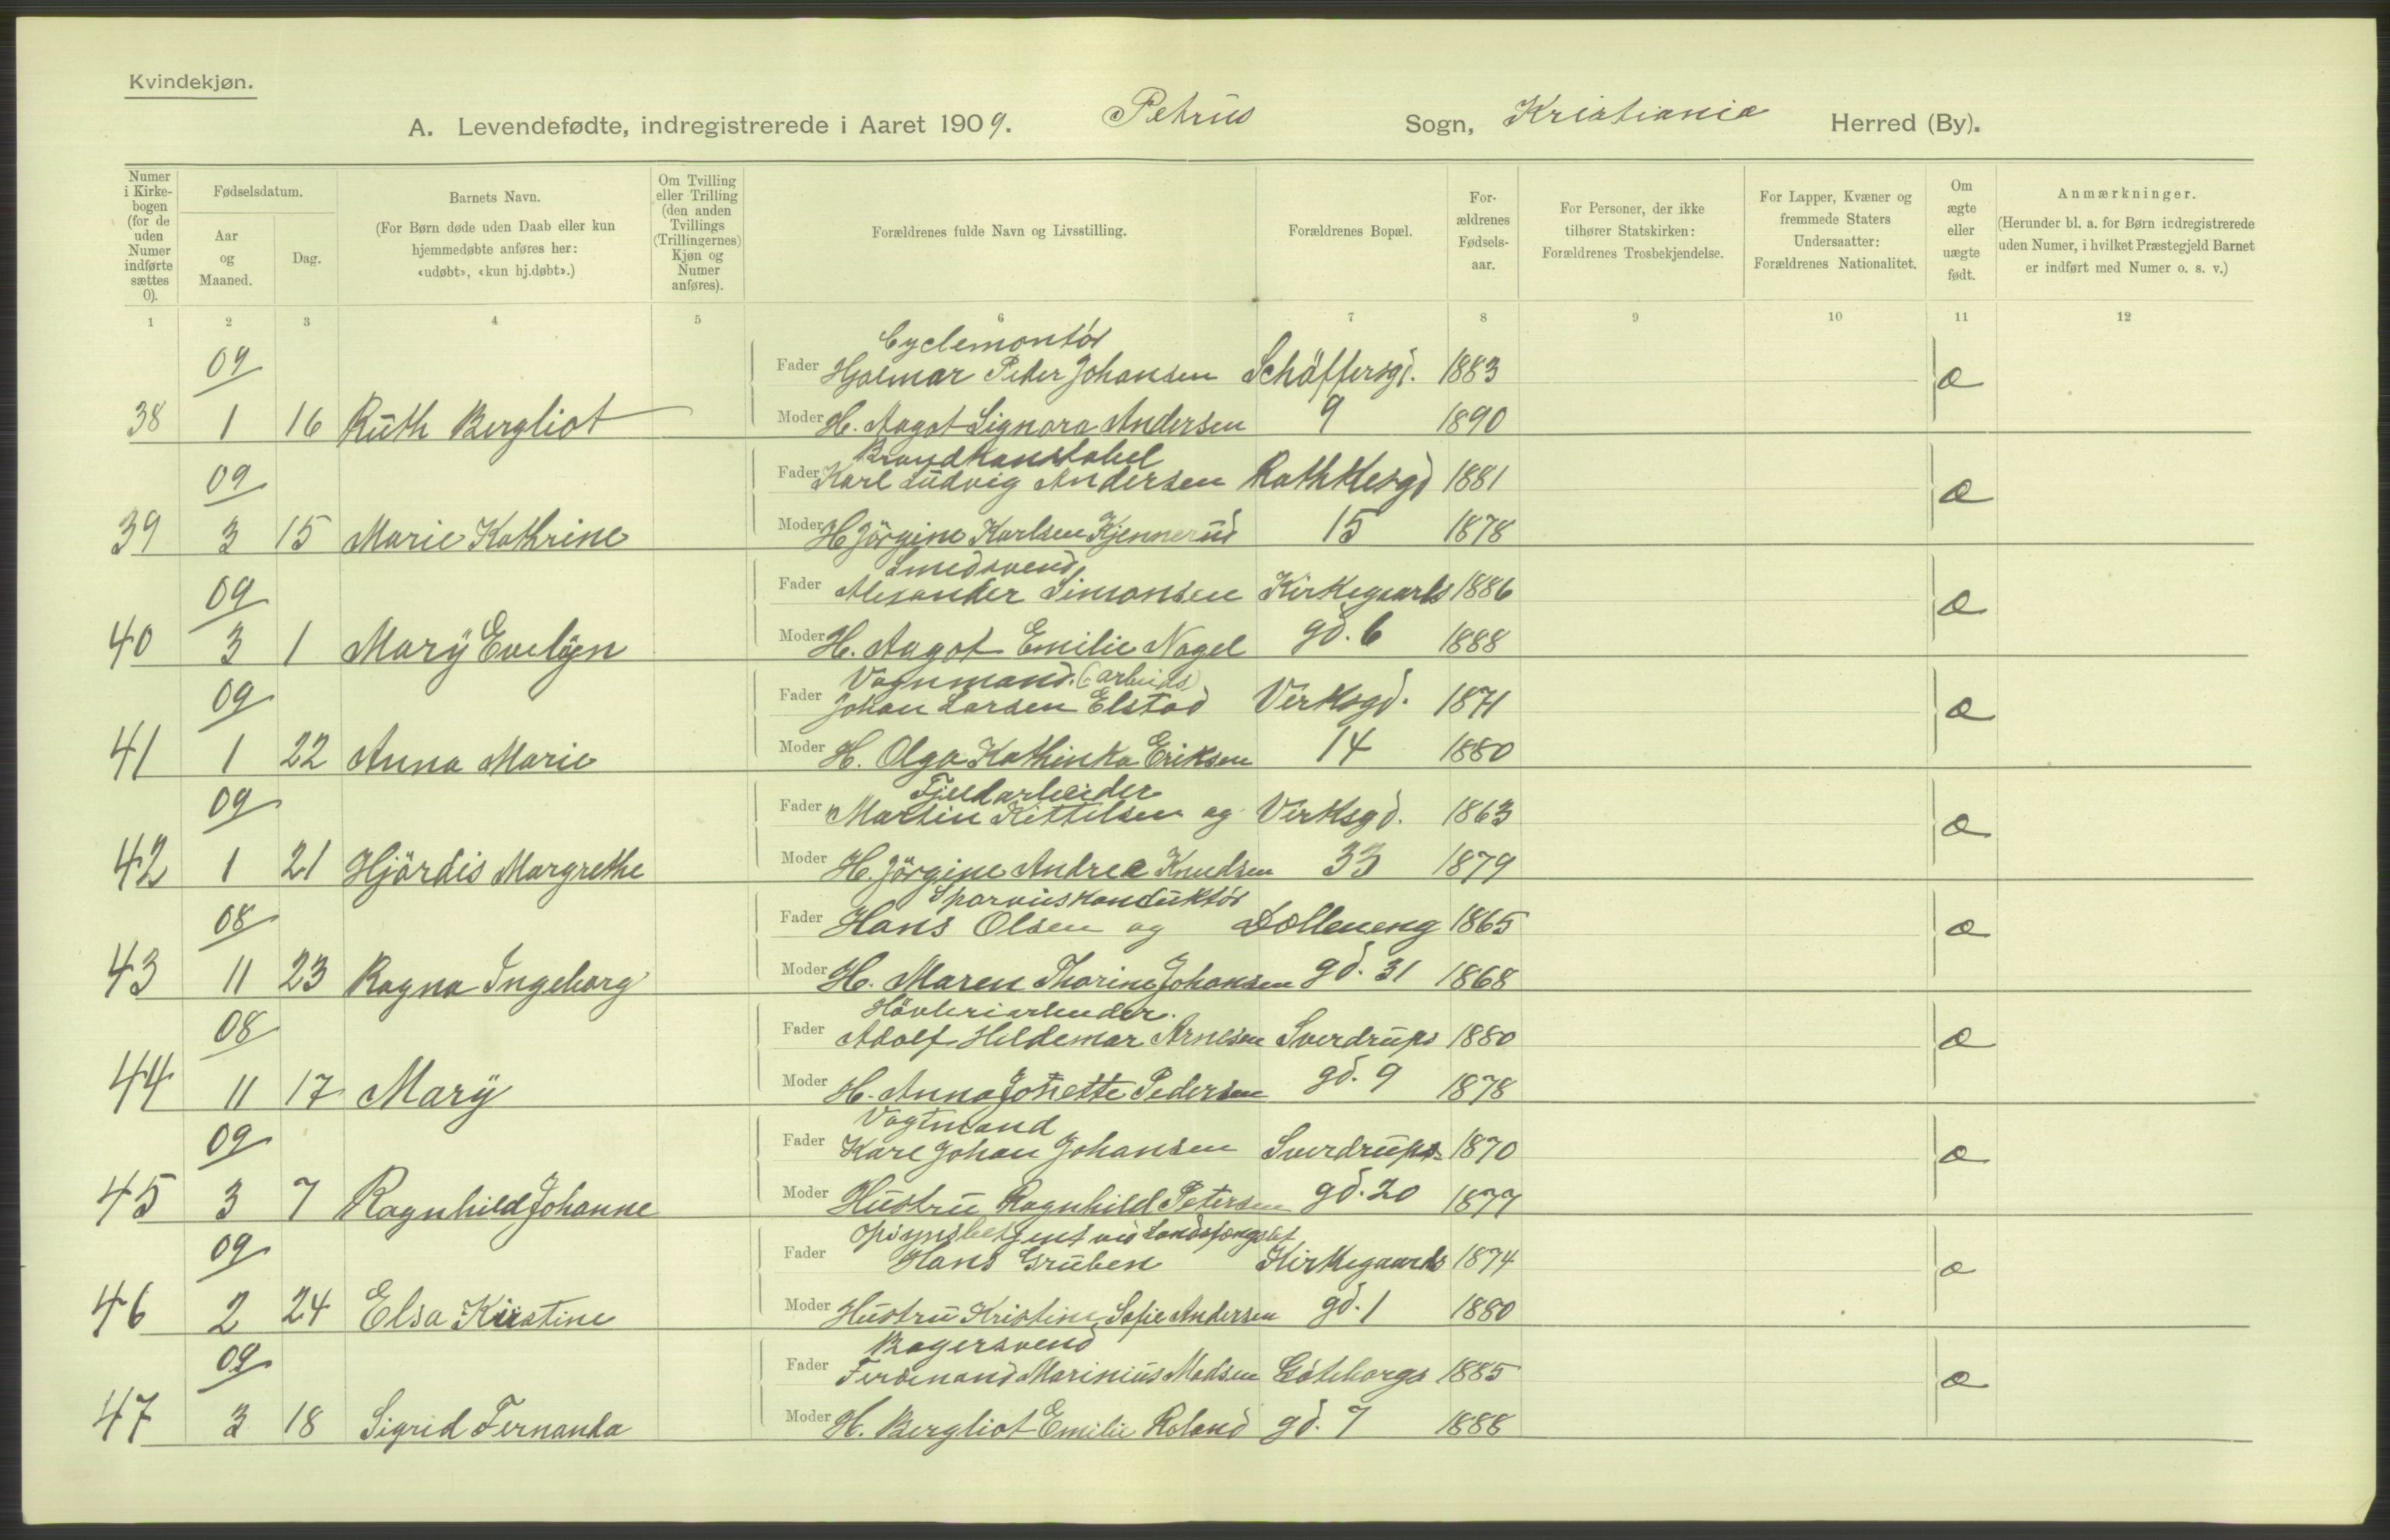 Kvindekjøn.
A. Levendefødte, indregistrerede i Aaret 1909. Petrus Sogn, Kristiania Herred (By).
Numer i Kirkebogen (for de uden Numer indførte sættes 0).
Fødselsdatum.
Aar og Maaned.
Dag.
Barnets Navn.
(For Børn døde uden Daab eller kun hjemmedøbte anføres her: «udøbt», «kun hj.døbt».)
Om Tvilling eller Trilling (den anden Tvillings (Trillingernes) Kjøn og Numer anføres).
Forældrenes fulde Navn og Livsstilling.
Forældrenes Bopæl.
Forældrenes Fødselsaar.
For Personer, der ikke tilhører Statskirken: Forældrenes Trosbekjendelse.
For Lapper, Kvæner og fremmede Staters Undersaatter: Forældrenes Nationalitet.
Om ægte eller uægte født.
Anmærkninger.
(Herunder bl. a. for Børn indregistrerede uden Numer, i hvilket Præstegjeld Barnet er indført med Numer o. s. v.)
1 2 3 4 5 6 7 8 9 10 11 12
Cyclemontör
09 Fader Hjalmar Peter Johansen Schäffersgd. 1883 æ
38 1 16 Ruth Bergliot Moder H. Aagot Signora Andersen 9 1890
Brandkonstabel
09 Fader Karl Ludvig Andersen Rathkesgd 1881 æ
39 3 15 Marie Kathrine Moder H Jörgine Karlsen Kjennerud 15 1878
Smedsvend
09 Fader Alexander Simonsen Kirkegaards 1886 æ
40 3 1 Mary Evelyn Moder H. Aagot Emilie Nagel gd. 6 1888
Vognmand. (arbeids)
09 Fader Johan Larsen Elstad Verksgd. 1871 æ
41 1 22 Anna Marie Moder H. Olga Kathinka Eriksen 14 1880
Fjeldarbeider
09 Fader Martin Kittelsen og Verksgd. 1863 æ
42 1 21 Hjördis Margrethe Moder H. Jörgine Andrea Knudsen 33 1879
Sporveiskonduktör
08 Fader Hans Olsen og Dælleneng 1865 æ
43 11 23 Ragna Ingeborg Moder H. Maren Thorine Johansen gd. 31 1868
Hövleriarbeider.
08 Fader Adolf Hildemar Arnesen Sverdrups 1880 æ
44 11 17 Mary Moder H. Anna Jonette Pedersen gd. 9 1878
Vognmand
09 Fader Karl Johan Johansen Sverdrups 1870 æ
45 3 7 Ragnhild Johanne Moder Hustru Ragnhild Petersen gd. 20 1877
Opsynsbetjent ved Landsfængslet
09 Fader Hans Gruben Kirkegaards 1874 æ
46 2 24 Elsa Kirstine Moder Hustru Kristine Sofie Andersen gd. 1 1880
Bagersvend
09 Fader Ferdinand Marinius Madsen Göteborgs 1885 æ
47 3 18 Sigrid Fernanda Moder H. Bergliot Emilie Roland gd. 7 1888